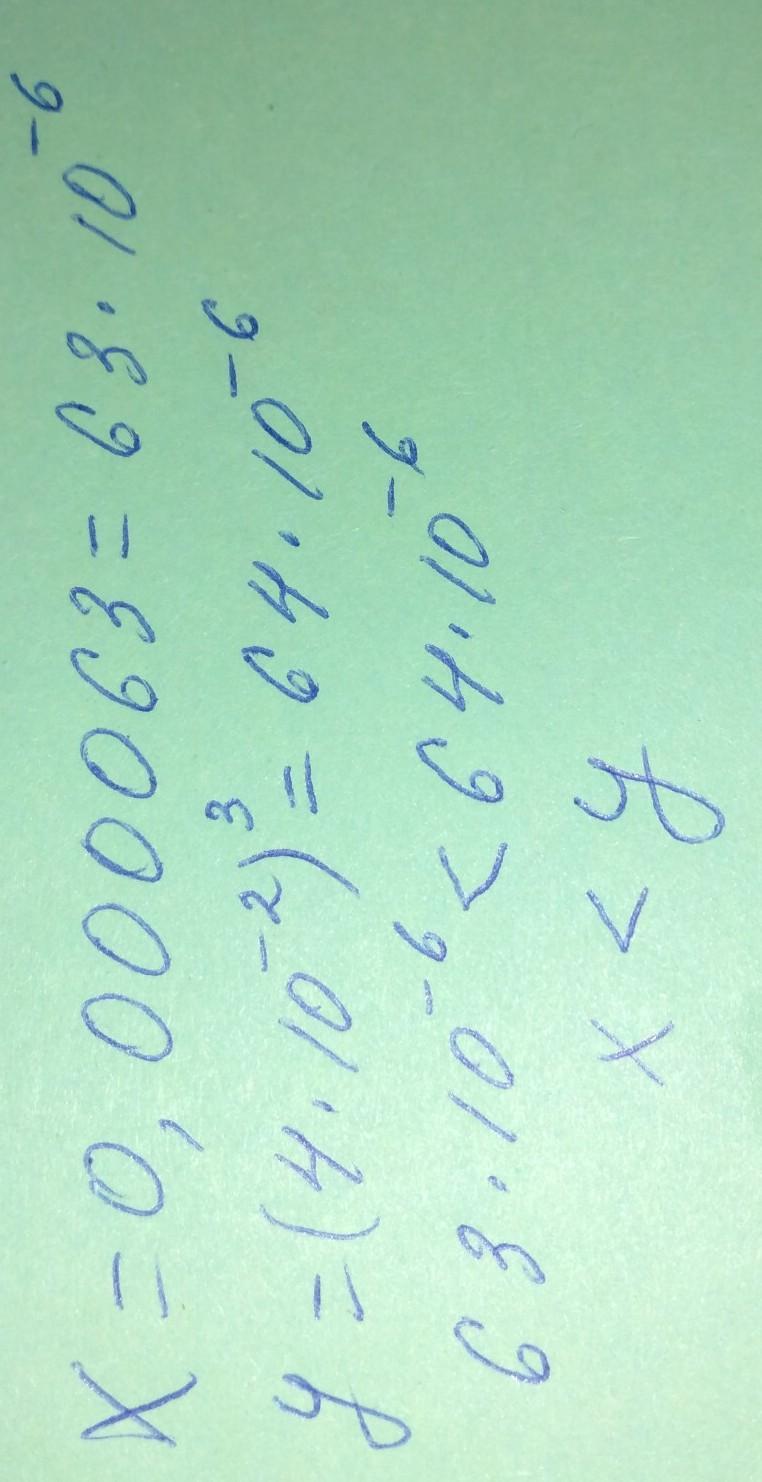 x = 0,000063 = 63 · 10⁻⁶
y = (4 · 10⁻²)³ = 64 · 10⁻⁶
63 · 10⁻⁶ < 64 · 10⁻⁶
x < y